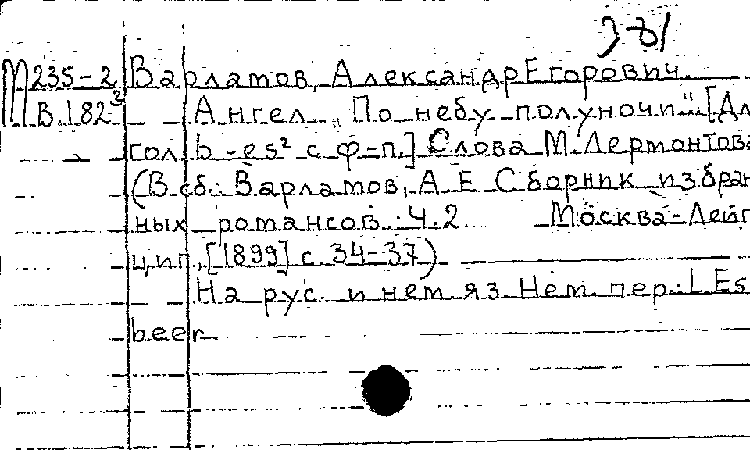 М 235-2 Варлатов, Александр Егорович.
В.182² Ангел „По небу полуночи" [Дл
гол. b-es² с ф-п.] Слова М. Лермонтова
(В сб.: Варлатов, А Е Сборник избран
ных романсов. Ч.2 Москва-Лейп
циг, [1899] с. 34-37)
На рус. и нем яз Нем. пер.: L Es
beer